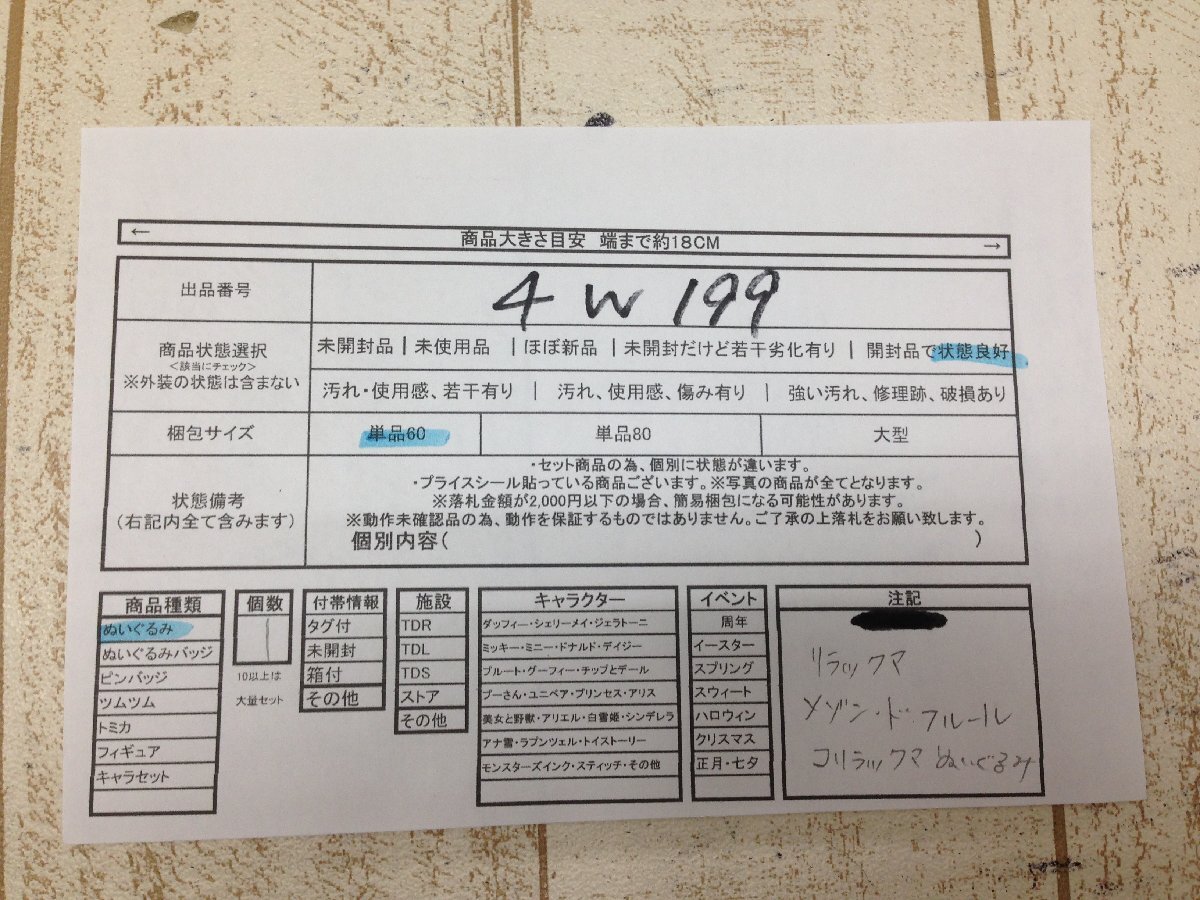 ← 商品大きさ目安 端まで約18CM →
出品番号 4W199
商品状態選択
<該当にチェック>
※外装の状態は含まない
未開封品 | 未使用品 | ほぼ新品 | 未開封だけど若干劣化有り | 開封品で状態良好
汚れ・使用感、若干有り | 汚れ、使用感、傷み有り | 強い汚れ、修理跡、破損あり
梱包サイズ 単品60 単品80 大型
状態備考
(右記内全て含みます)
・セット商品の為、個別に状態が違います。
・プライスシール貼っている商品ございます。※写真の商品が全てとなります。
※落札金額が2,000円以下の場合、簡易梱包になる可能性があります。
※動作未確認品の為、動作を保証するものではありません。ご了承の上落札をお願い致します。
個別内容( )
商品種類
ぬいぐるみ
ぬいぐるみバッジ
ピンバッジ
ツムツム
トミカ
フィギュア
キャラセット
個数
1
10以上は
大量セット
付帯情報
タグ付
未開封
箱付
その他
施設
TDR
TDL
TDS
ストア
その他
キャラクター
ダッフィー・シェリーメイ・ジェラトーニ
ミッキー・ミニー・ドナルド・デイジー
プルート・グーフィー・チップとデール
プーさん・ユニベア・プリンセス・アリス
美女と野獣・アリエル・白雪姫・シンデレラ
アナ雪・ラプンツェル・トイストーリー
モンスターズインク・スティッチ・その他
イベント
周年
イースター
スプリング
スウィート
ハロウィン
クリスマス
正月・七夕
注記
リラックマ
メゾン・ド・フルール
コリラックマ ぬいぐるみ